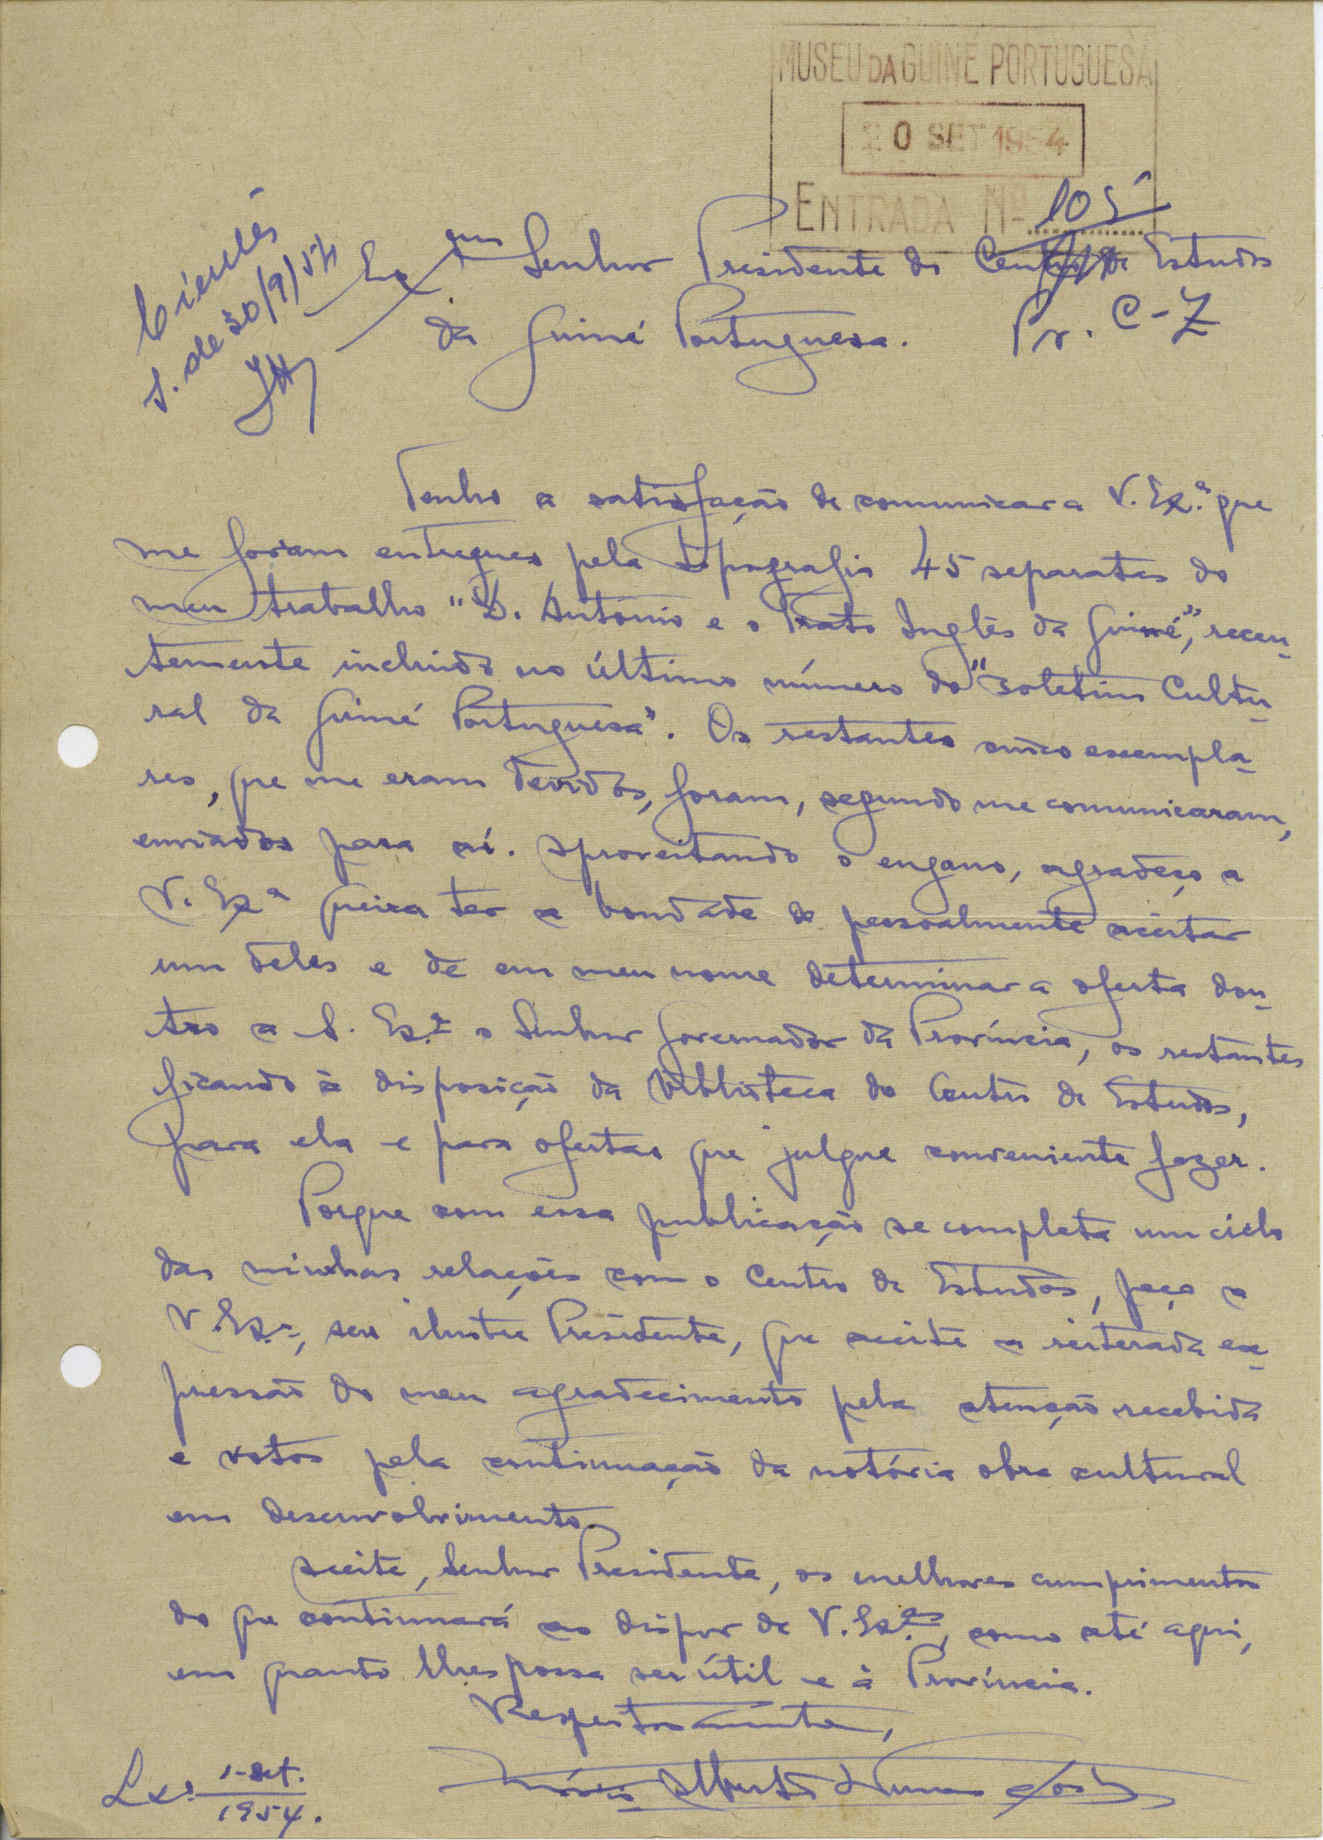 MUSEU DA GUINÉ PORTUGUESA
20 SET 1954
ENTRADA Nº 105
Cientes
S. de 30/9/54
Exmo Senhor Presidente do Centro de Estudos
da Guiné Portuguesa.
Pr. C-Z
Tenho a satisfação de comunicar a V. Ex.ª que
me foram entregues pela tipografia 45 separatas do
meu trabalho "D. António e o Trato Inglês da Guiné", recen-
temente incluido no último número do "Boletim Cultu-
ral da Guiné Portuguesa". Os restantes cinco exempla-
res, que me eram devidos, foram, segundo me comunicaram,
enviados para aí. Aproveitando o engano, agradeço a
V. Exª queira ter a bondade de pessoalmente aceitar
um deles e de em meu nome determinar a oferta dou-
tro a S. Ex.ª o Senhor Governador da Província, os restantes
ficando à disposição da biblioteca do Centro de Estudos,
para ela e para ofertas que julgue conveniente fazer.
Porque com essa publicação se completa um ciclo
das minhas relações com o Centro de Estudos, peço a
V. Ex.ª, seu ilustre Presidente, que aceite a reiterada ex-
pressão do meu agradecimento pela atenção recebida
e votos pela continuação da notória obra cultural
em desenvolvimento.
Aceite, Senhor Presidente, os melhores cumprimentos
do que continuará ao dispor de V. Ex.as, como até aqui,
em quanto lhes possa ser útil e à Província.
Respeitosamente,
Mário Alberto Nunes Costa
Lx.ª 1-Set.
1954.